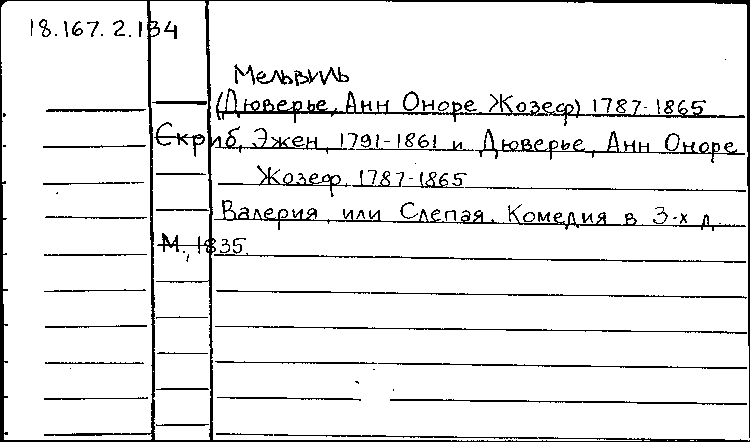 18.167.2.134
Мельвиль
(Дюверье, Анн Оноре Жозеф) 1787-1865
Скриб, Эжен, 1791-1861 и Дюверье, Анн Оноре
Жозеф, 1787-1865
Валерия, или Слепая. Комедия в 3-х д.
М., 1835.